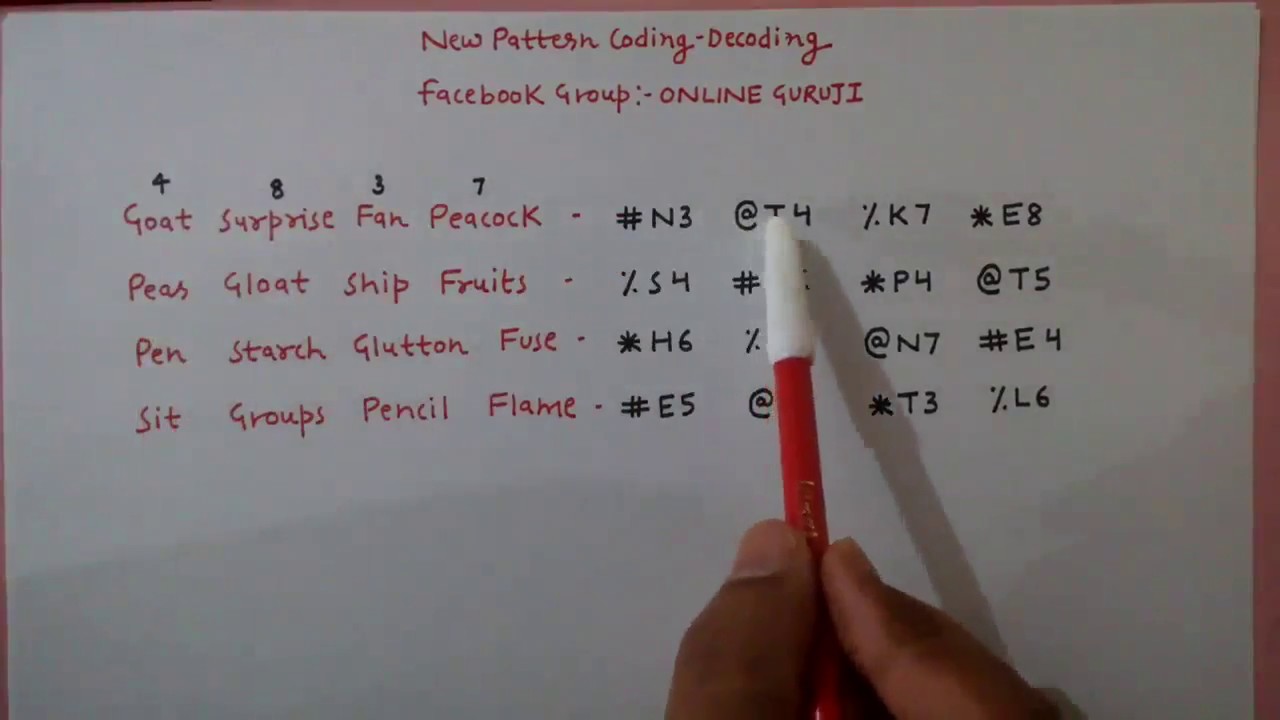 New Pattern Coding-Decoding
Facebook Group:- ONLINE GURUJI
4 8 3 7
Goat Surprise Fan Peacock - #N3 @T4 %K7 *E8
Peas Gloat Ship Fruits - %S4 # *P4 @T5
Pen Starch Glutton Fuse - *H6 % @N7 #E4
Sit Groups Pencil Flame - #E5 @ *T3 %L6